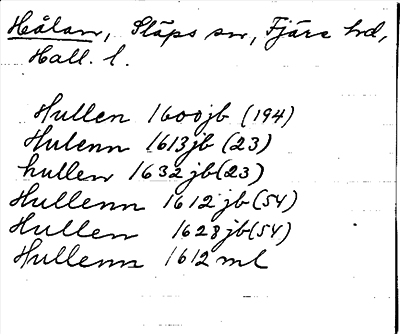 Hålan, Släps sn, Fjäre hd,
Hall. l.
Hullen 1600jb (194)
Hulenn 1613jb (23)
hullen 1632jb(23)
Hullenn 1612jb(54)
Hullen 1628jb(54)
Hullenn 1612ml